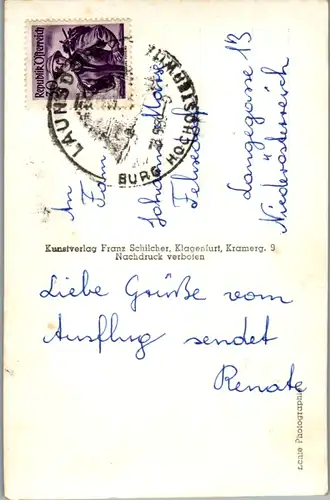 Republik Österreich
LAUNSDORF
BURG HOCHOSTERWITZ
An
Fam
Johann
Langegasse 13
Niederösterreich
Kunstverlag Franz Schilcher, Klagenfurt, Kramerg. 9
Nachdruck verboten
Liebe Grüße vom
Ausflug sendet
Renate
Echte Photographie